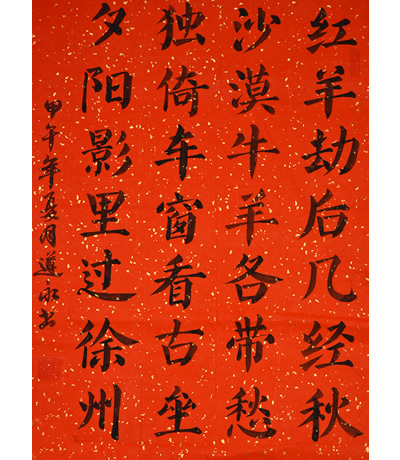 红羊劫后几经秋
沙漠牛羊各带愁
独倚车窗看古垒
夕阳影里过徐州
甲午年夏月遵永书